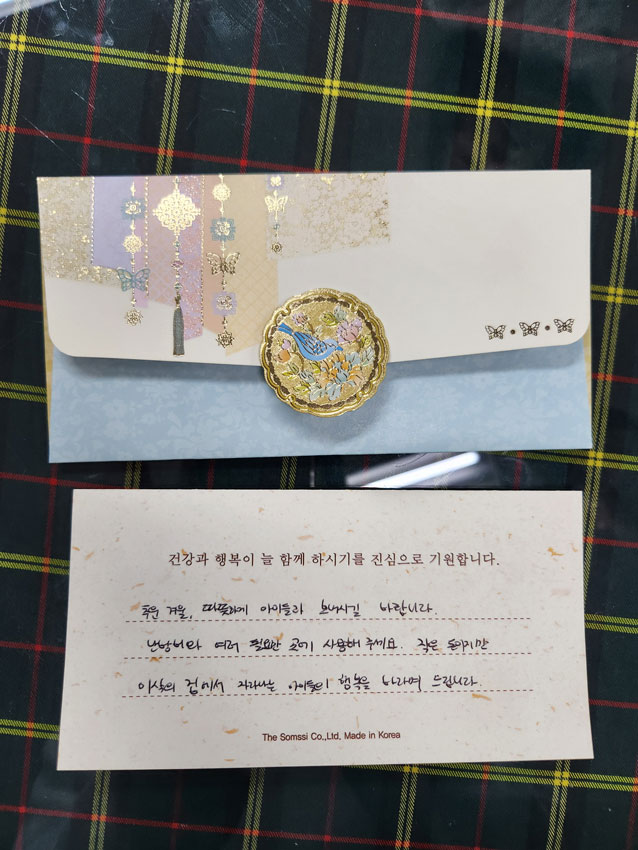 건강과 행복이 늘 함께 하시기를 진심으로 기원합니다.
추운 겨울, 따뜻하게 아이들과 보내시길 바랍니다.
난방비와 여러 필요한 곳에 사용해 주세요. 작은 돈이지만
에서 자라나는 아이들의 행복을 바라며 드립니다.
The Somssi Co.,Ltd, Made in Korea